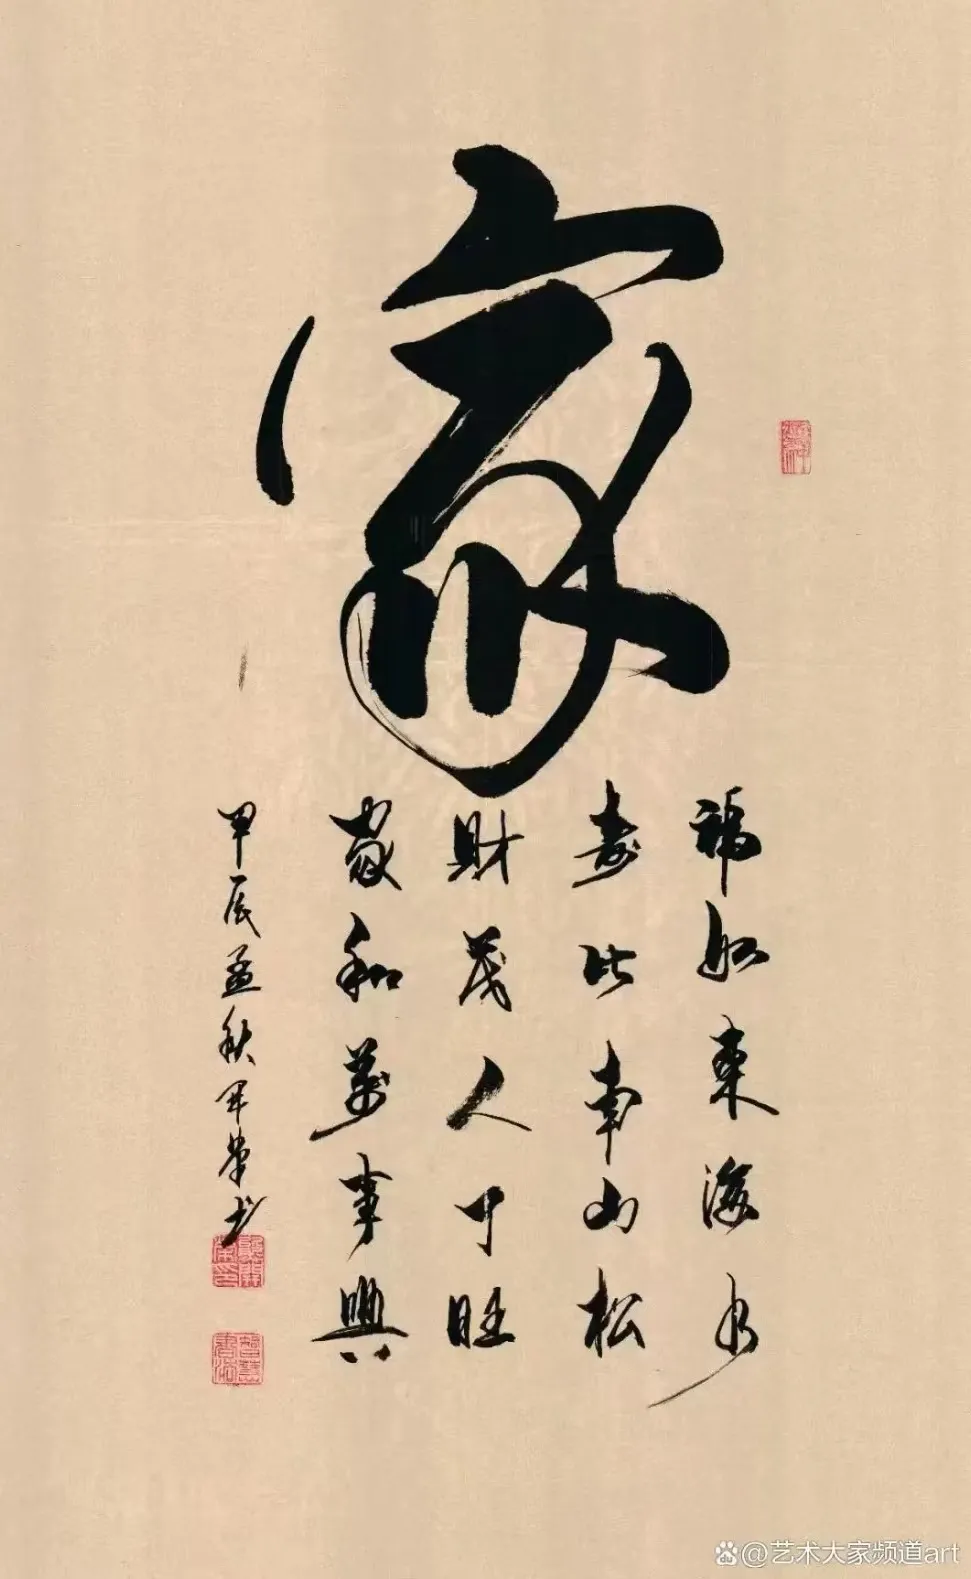 家
福如東海水
壽比南山松
財茂人丁旺
家和萬事興
甲辰孟秋開榮书
@艺术大家频道art